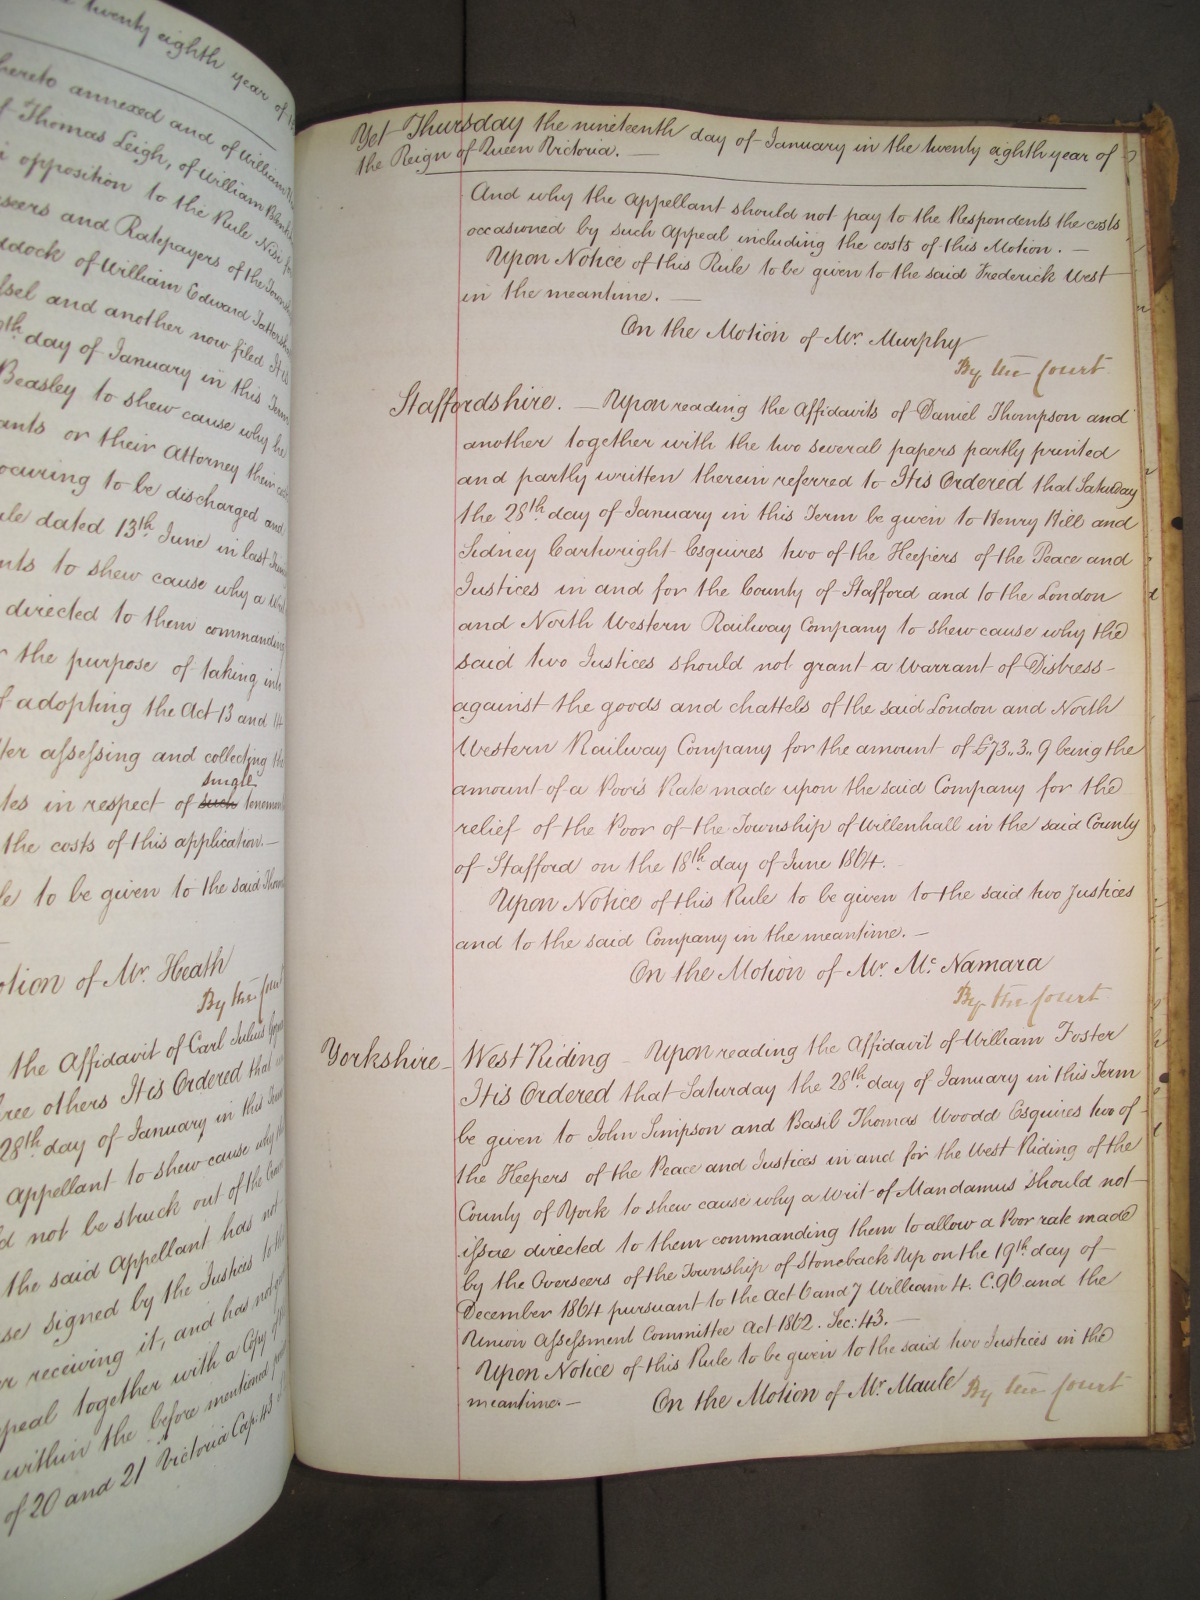 twenty eighth year of
hereto annexed and of William
Thomas Leigh, of William
opposition to the Rule Nisi for
and Ratepayers of the
of William Edward
and another now filed It is
day of January in this Term
Beasley to shew cause why he
or their Attorney their
to be discharged and
dated 13th. June in last
to shew cause why a
directed to them commanding
the purpose of taking into
adopting the Act 13 and 14
assessing and collecting the
single
in respect of such
the costs of this application. —
to be given to the said
of Mr. Heath
By the Court
the Affidavit of Carl Julius
three others It is Ordered that
28th day of January in this
Appellant to shew cause why
not be struck out of the
the said Appellant has not
signed by the Justices
receiving it, and has not
together with a Copy
within the before mentioned
of 20 and 21 Victoria Cap: 43
Yet Thursday the nineteenth day of January in the twenty eighth year of
the Reign of Queen Victoria. —
And why the Appellant should not pay to the Respondents the costs
occasioned by such Appeal including the costs of this Motion. —
Upon Notice of this Rule to be given to the said Frederick West
in the meantime. —
On the Motion of Mr. Murphy
By the Court.
Staffordshire. — Upon reading the Affidavits of Daniel Thompson and
another together with the two several papers partly printed
and partly written therein referred to It is Ordered that Saturday
the 28th. day of January in this Term be given to Henry Hill and
Sidney Cartwright Esquires two of the Keepers of the Peace and
Justices in and for the County of Stafford and to the London
and North Western Railway Company to shew cause why the
said two Justices should not grant a Warrant of Distress
against the goods and chattels of the said London and North
Western Railway Company for the amount of £73.,3.,9 being the
amount of a Poor's Rate made upon the said Company for the
relief of the Poor of the Township of Willenhall in the said County
of Stafford on the 18th. day of June 1864.
Upon Notice of this Rule to be given to the said two Justices
and to the said Company in the meantime. —
On the Motion of Mr. Mc. Namara
By the Court
Yorkshire — West Riding — Upon reading the Affidavit of William Foster
It is Ordered that Saturday the 28th. day of January in this Term
be given to John Simpson and Basil Thomas Woodd Esquires two of
the Keepers of the Peace and Justices in and for the West Riding of the
County of York to shew cause why a Writ of Mandamus should not
issue directed to them commanding them to allow a Poor rate made
by the Overseers of the Township of Stoneback Up on the 19th. day of
December 1864 pursuant to the Act 6 and 7 William 4. C. 96 and the
Union Assessment Committee Act 1862. Sec: 43. —
Upon Notice of this Rule to be given to the said two Justices in the
meantime. — On the Motion of Mr. Maule By the Court